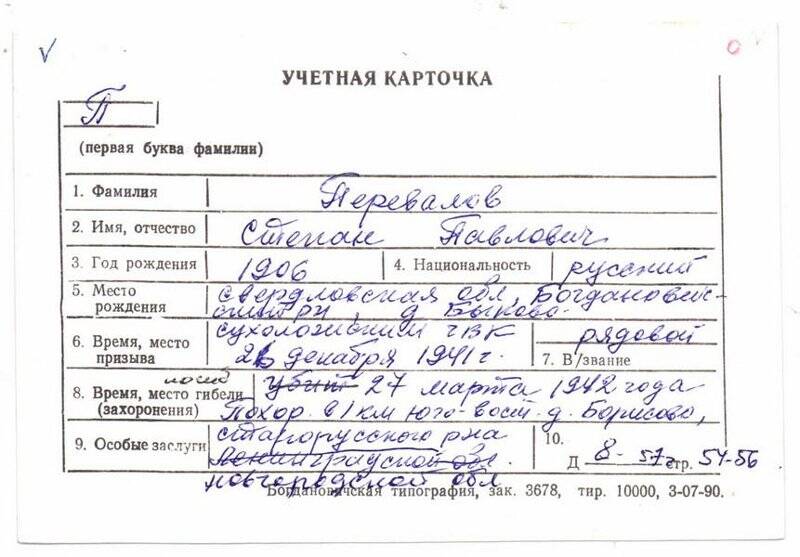 УЧЕТНАЯ КАРТОЧКА
П
(первая буква фамилии)
1. Фамилия Перевалов
2. Имя, отчество Степан Павлович
3. Год рождения 1906 4. Национальность русский
5. Место рождения Свердловская обл, Богданович-
ский рн, д Быково
6. Время, место призыва Сухоложский ГВК
26 декабря 1941 г.
рядовой
7. В/звание
погиб
8. Время, место гибели (захоронения) убит 27 марта 1942 года
Похор. в 1 км юго-вост. д. Борисово,
9. Особые заслуги Старорусского р-на
Ленинградской обл.
Новгородской обл
10.
Д 8-57 стр. 54-56
Богдановичская типография, зак. 3678, тир. 10000, 3-07-90.